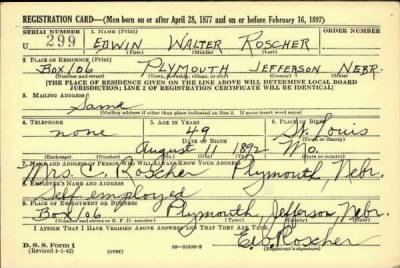 REGISTRATION CARD—(Men born on or after April 28, 1877 and on or before February 16, 1897)
SERIAL NUMBER 1. NAME (Print) ORDER NUMBER
U 299 EDWIN WALTER ROSCHER
(First) (Middle) (Last)
2. PLACE OF RESIDENCE (Print)
Box 106 PLYMOUTH JEFFERSON NEBR.
(Number and street) (Town, township, village, or city) (County) (State)
[THE PLACE OF RESIDENCE GIVEN ON THE LINE ABOVE WILL DETERMINE LOCAL BOARD
JURISDICTION; LINE 2 OF REGISTRATION CERTIFICATE WILL BE IDENTICAL]
3. MAILING ADDRESS
Same
(Mailing address if other than place indicated on line 2. If same insert word same)
4. TELEPHONE 5. AGE IN YEARS 6. PLACE OF BIRTH
none 49 St. Louis
DATE OF BIRTH (Town or county)
August 11 1892 Mo.
(Exchange) (Number) (Mo.) (Day) (Yr.) (State or country)
7. NAME AND ADDRESS OF PERSON WHO WILL ALWAYS KNOW YOUR ADDRESS
Mrs. C. Roscher Plymouth, Nebr.
8. EMPLOYER'S NAME AND ADDRESS
Self employed
9. PLACE OF EMPLOYMENT OR BUSINESS
Box 106 Plymouth, Jefferson, Nebr.
(Number and street or R. F. D. number) (Town) (County) (State)
I AFFIRM THAT I HAVE VERIFIED ABOVE ANSWERS AND THAT THEY ARE TRUE.
D. S. S. Form 1
(Revised 4-1-42) (over) Roscher
(Registrant's signature)